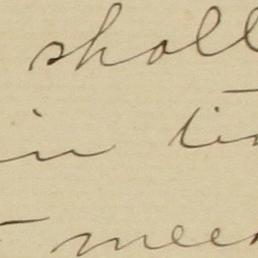 shall
in ti
mee